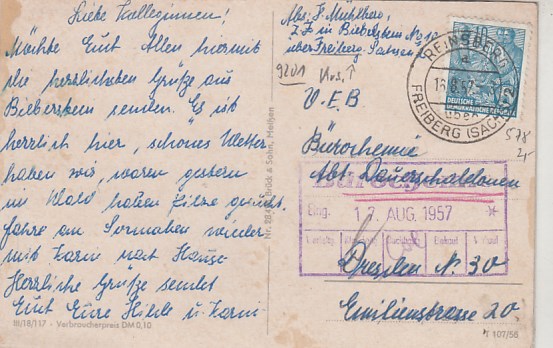 Liebe Kolleginnen!
Möchte Euch Allen hiermit
die herrlichsten Grüße aus
Bieberstein senden. Es ist
herrlich hier, schönes Wetter
haben wir, waren gestern
im Wald haben Pilze gesucht.
Fahre am Sonnabend wieder
mit Karin nach Hause
Herzliche Grüße sendet
Euch Eure Hilde u. Karin
III/18/117 - Verbraucherpreis DM 0,10
Brück & Sohn, Meißen
Abs. F. Mühlbau,
Z.F in Bieberstein No 10
über Freiberg-Sachsen
9201
V.E.B
Bürochemie
Abt. Dauerschablonen
Eing. 17. AUG. 1957 *
Einkauf
Dresden N. 30
Emilienstrasse 20
T 107/56
REINSBERG
a
FREIBERG (SACHS)
10
DEUTSCHE
DEMOKRATISCHE REPUBLIK
578
2,-